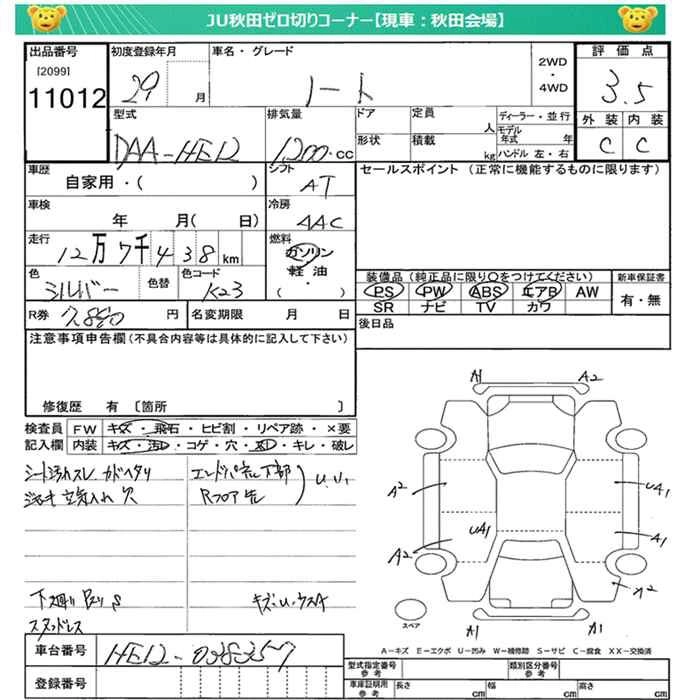 JU秋田ゼロ切りコーナー【現車：秋田会場】
出品番号 初度登録年月 車名・グレード 評価点
[2099] 2WD
11012 29 月 ノート ・ 3.5
4WD
型式 排気量 ドア 定員 ディーラー・並行 外装 内装
人 モデル年式 年
DAA-HE12 1200 CC 形状 積載 kg ハンドル 左・右 C C
車歴 シフト セールスポイント（正常に機能するものに限ります）
自家用・( ) AT
車検 冷房
年 月( 日) AAC
走行 燃料
12万7千438km ガソリン
軽油
・
( )
色 色替 色コード 装備品（純正品に限り○をつけてください） 新車保証書
シルバー K23 PS PW ABS エアB AW 有・無
SR ナビ TV カワ
R券 7,880円 名変期限 月 日 後日品
注意事項申告欄（不具合内容等は具体的に記入して下さい）
修復歴 有 〔箇所 〕
検査員 FW キズ・飛石・ヒビ割・リペア跡・×要
記入欄 内装 キズ・汚レ・コゲ・穴・スレ・キレ・破レ
シート汚れスレ カドヘタリ エンドパネル下部
欠 Rフロア 先 U.U1
下廻り サビ S キズ.U.ウスA
スタッドレス
A1 A2
A2 UA1
UA1 A1
A2 A2
スペア A1 A1
A－キズ E－エクボ U－凹み W－補修跡 S－サビ C－腐食 XX－交換済
車台番号 HE12-038357
登録番号
型式指定番号 参考 類別区分番号 参考
車庫証明用 参考 長さ cm 幅 cm 高さ cm